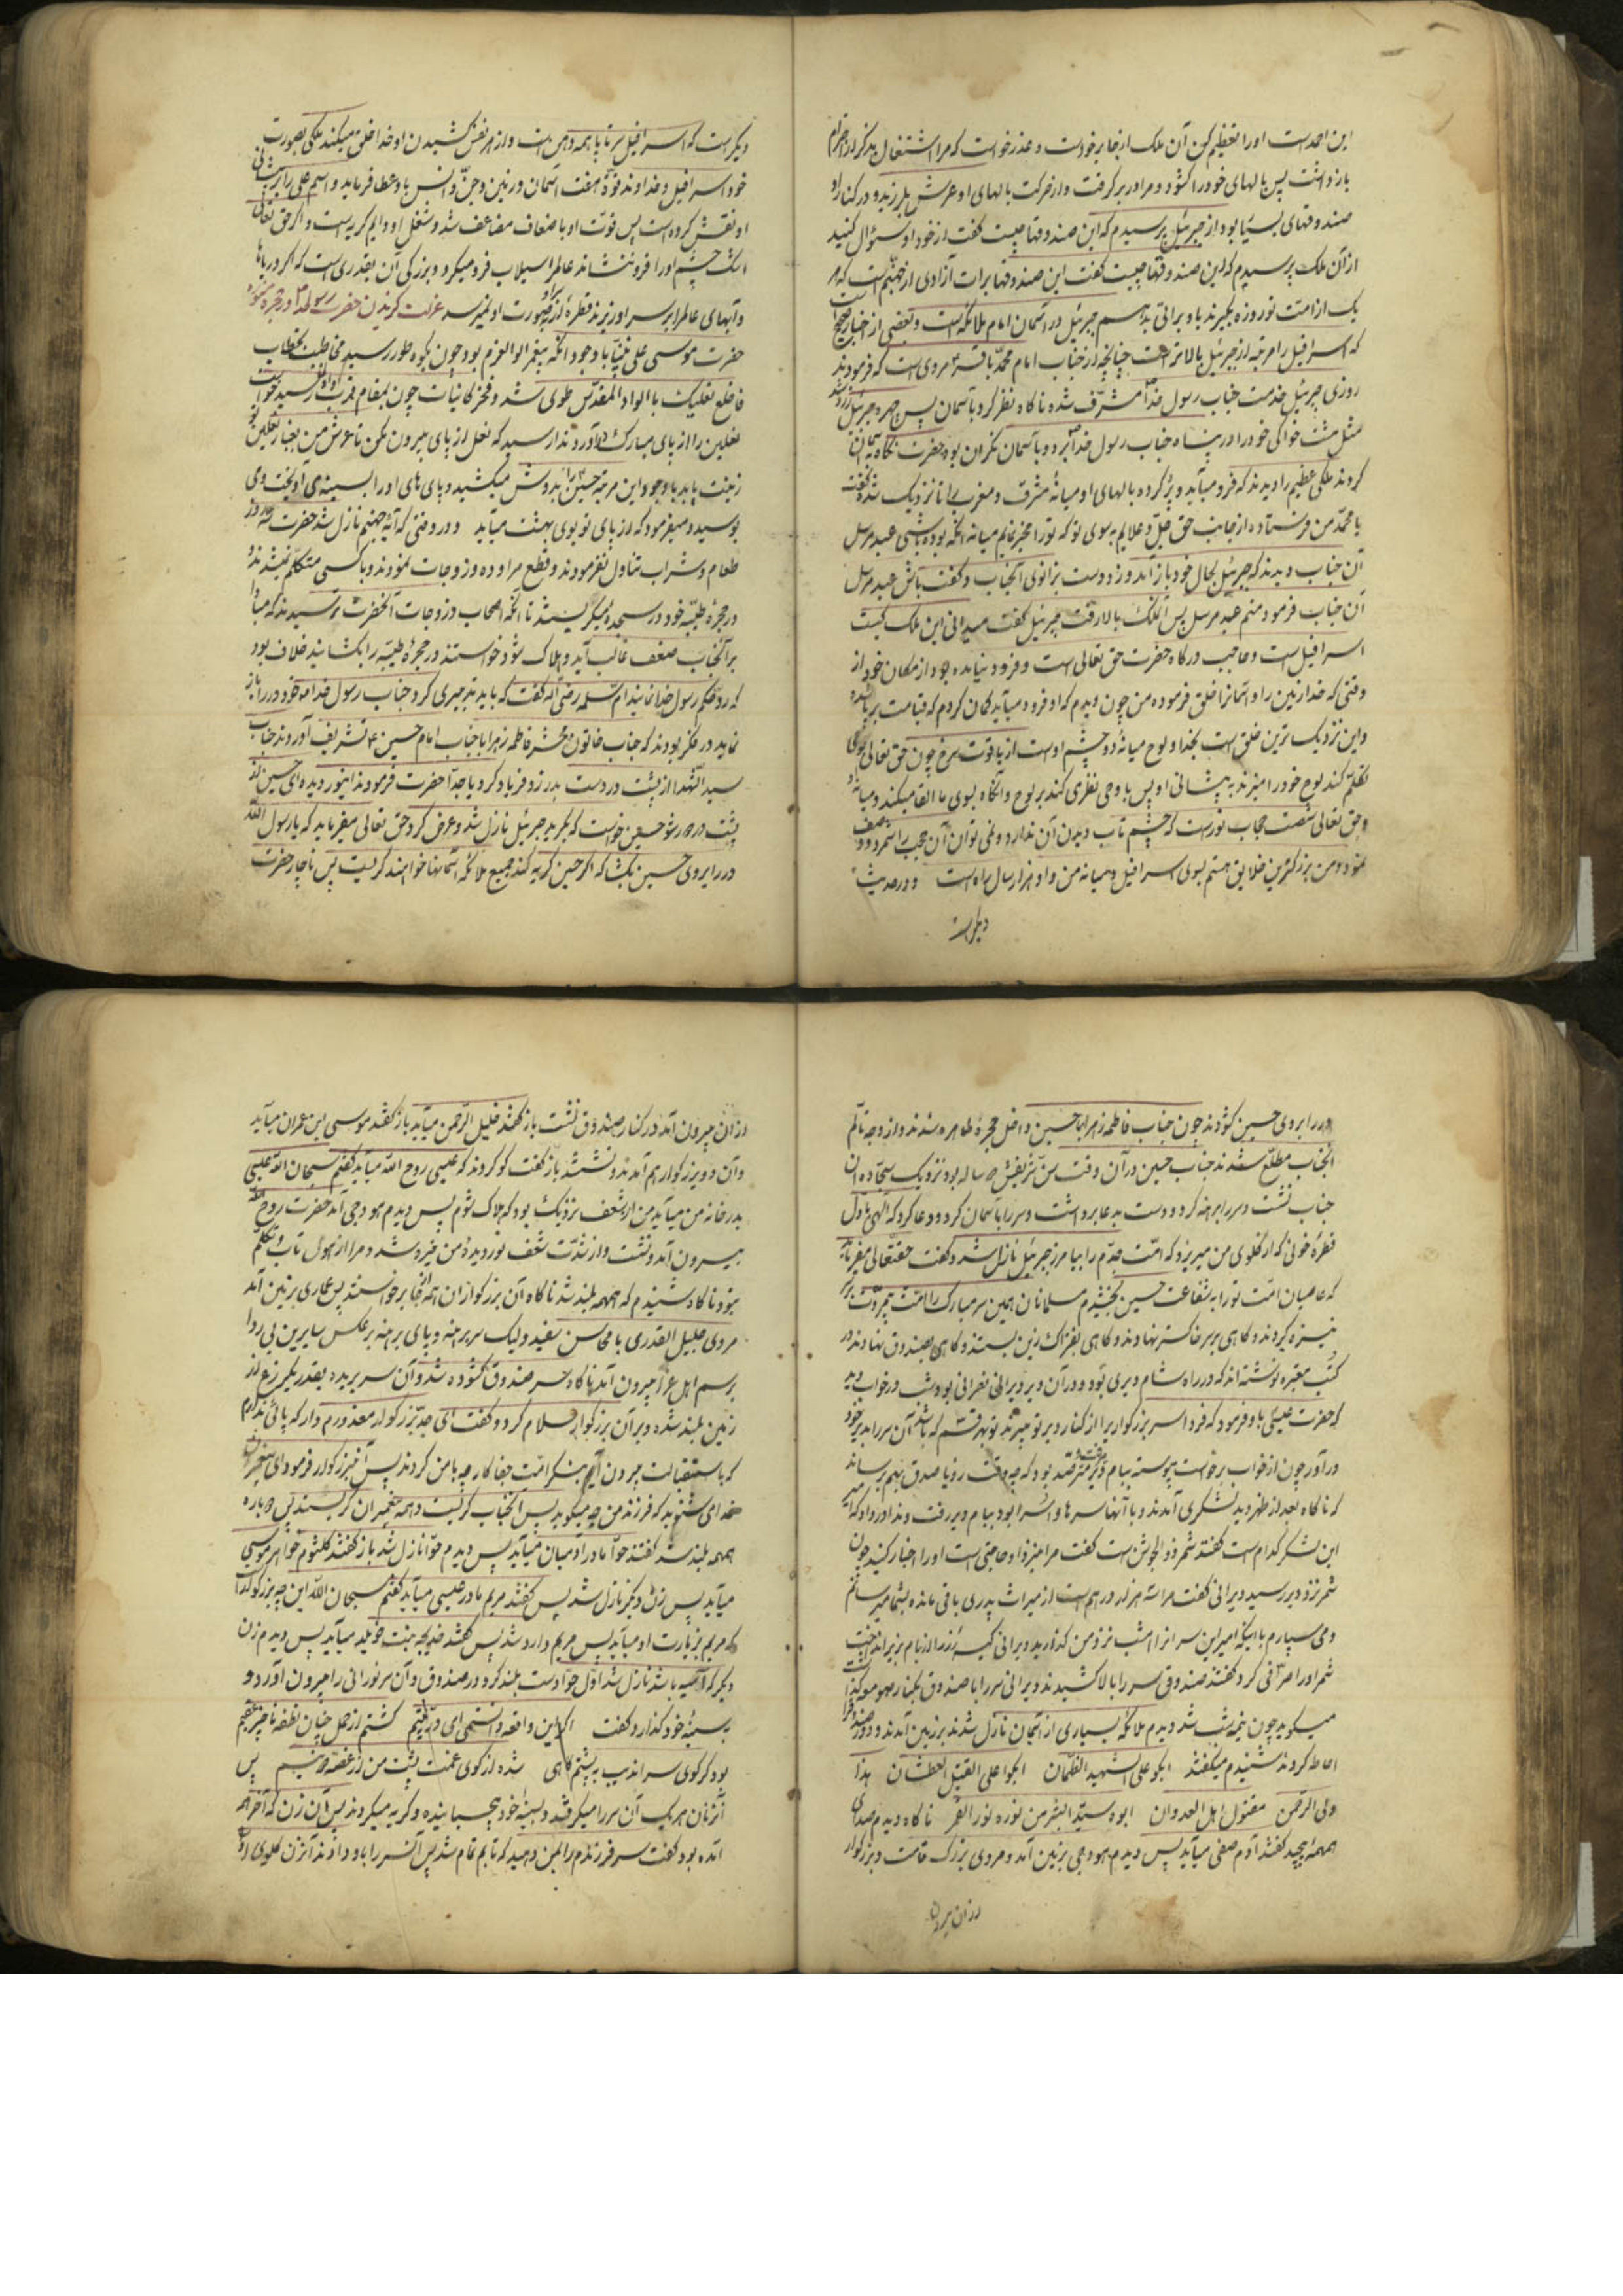 این احمد است اورا تعظیم کن آن ملک از جا برخواست و عذر خواست که مرا اشتغال بذکر از احترام
بازداشت پس بالهای خود را کشود و مرا در بر گرفت و از حرکت بالهای او عرش بلرزید و در کنار او
صندوقهای بسیار بود از جبرئیل پرسیدم که این صندوقها چیست گفت از خود او سؤال کنید
از آن ملک پرسیدم که این صندوقها چیست گفت این صندوقها برات آزادی از جهنم است که هر
یک از امت تو روزه بگیرند باو براتی بدهم جبرئیل در آسمان امام ملائکه است و بعضی از اخبار
که اسرافیل را مرتبه از جبرئیل بالاتر است چنانچه از جناب امام محمد باقر ع مروی است که فرمودند
روزی جبرئیل خدمت جناب رسول خدا ص مشرف شده ناگاه نظر کرد بآسمان پس چهره جبرئیل زرد شد
مثل مشت خاکی خود را در پناه جناب رسول خدا برد و بآسمان نگران بود حضرت نگاه بآسمان
کردند ملکی عظیم را دیدند که فرو میآید و پر کرده بالهای او میانهٔ مشرق و مغرب را تا نزدیک شد گفت
یا محمد من فرستاده از جانب حق جل و علایم بسوی تو که تو را مخیر نمایم میانه آنکه بوده باشی عبد مرسل
آن جناب دیدند که جبرئیل بحال خود باز آمد و زد دست بزانوی آنجناب و گفت باش عبد مرسل
آن جناب فرمود منم عبد مرسل پس آن ملک بالا رفت جبرئیل گفت میدانی این ملک کیست
اسرافیل است و حاجب درگاه حضرت حق تعالی است و فرود نیامده بود از مکان خود از
وقتی که خدا زمین را و آسمانرا خلق فرموده من چون دیدم که او فرود میآید گمان کردم که قیامت برپا شده
و این نزدیک ترین خلق است بخدا و لوح میانهٔ دو چشم اوست از یاقوت سرخ چون حق تعالی بوحی
تکلم کند لوح خود را میزند به پیشانی او پس باوحی نظری کند بر لوح و آنگاه بسوی ما القا میکند و میانه او
و حق تعالی شصت حجاب نور است که چشم تاب دیدن آن ندارد و نمی توان آن حجب را شمرد و وصف
نمود و من بزرگترین خلایق هستم بسوی اسرافیل و میانه من و او هزار سال راه است و در حدیث
دیگر است
دیگر است که اسرافیل سرتا پا همه دهن است و از هر نفس کشیدن او خدا خلق میکند ملکی بصورت
خود اسرافیل و خداوند قوّة هفت آسمان و زمین و جنّ و انس باو عطا فرماید و اسم علی را بر پیشانی
او نقش کرده است پس قوّت او باضعاف مضاعف شد و شغل او دایم گریه است و اگر حق تعالی
اشک چشم او را فرو ننشاند عالم را سیلاب فرو میگیرد و بزرگی آن بقدری است که اگر دریاها
و آبهای عالم را بر سر او ریزند قطرهٔ از بر صورت او نمیرسد عزلت گزیدن حضرت رسول خدا در حجره
حضرت موسی علی نبینا با وجود آنکه پیغمبر اولوالعزم بود چون بکوه طور رسید مخاطب بخطاب
فاخلع نعلیک بالواد المقدس طوی شد و فخر کاینات چون بمقام قرب رسید خواست
نعلین را از پای مبارک در آورد ندا رسید که نعل از پای بیرون مکن تا عرش من بغبار نعلین تو
زینت یابد با وجود این مرتبه حسین را بدوش میکشید و پای های او را بسینه می آویخت و می
بوسید و میفرمود که از پای تو بوی بهشت میآید و در وقتی که آیه جهنم نازل شد حضرت سه روز
طعام و شراب تناول نفرمودند و قطع مراوده زوجات نمودند و باکسی متکلم نمیشدند و
در حجرهٔ طیبه خود در سجده میگریستند تا آنکه اصحاب و زوجات آنحضرت ترسیدند که مبادا
بر آنجناب ضعف غالب آید و هلاک شود خواستند در حجرهٔ طیبه را بکشایند خلاف بود
نماید در فکر بودند که جناب خاتون محشر فاطمه زهرا با جناب امام حسین ع تشریف آوردند جناب
سید الشهدا از پشت در دست بدر زد و فریاد کرد یا جدّا حضرت فرمودند اینور دیده ای حسین از
پشت در دور شو حسین خواست که بگرید جبرئیل نازل شد و عرض کرد حق تعالی میفرماید که یا رسول الله
در را بروی حسین بکشا که اگر حسین گریه کند جمیع ملائکه آسمانها خواهند گریست پس ناچار حضرت
در را بروی حسین کشودند چون جناب فاطمه زهرا با حسین داخل حجرهٔ طاهره شدند و از وجه تألم
آنجناب مطلع شدند جناب حسین در آن وقت سن شریفش ۵ ساله بود نزدیک سجاده آن
جناب نشست و سر را برهنه کرد و دست بدعا برداشت و سر را بآسمان کرد و دعا کرد که الهی باول
قطرهٔ خونی که از گلوی من میریزد که امّت جدّم را بیامرز جبرئیل نازل شد و گفت حقتعالی میفرماید
که عاصیان امّت تو را به شفاعت حسین بخشیدم مسلمانان همین سر مبارک را امّت بیمروّت بر
نیزه کردند و گاهی بر سر خاکستر نهادند و گاهی بفتراک زین بستند و گاهی بصندوق نهادند در
کتب معتبره نوشته اند که در راه شام دیری بود و در آن دیر دیرانی نصرانی بود شب در خواب دید
که حضرت عیسی باو فرمود که فردا سر بزرگواریرا از کنار دیر تو میبرند تو بهر قسم که باشد آن سر را بدیر خود
در آور چون از خواب برخواست پیوسته ببام دیر مترصد بود که چه وقت رؤیا صدق بهم رساند
که ناگاه بعد از ظهر دید لشکری آمدند و با آنها سرها و اسرا بود ببام دیر رفت و ندا در داد که امیر
این لشکر کدام است گفتند شمر ذو الجوشن است گفت مرا بنزد او حاجتی است او را اخبار کنید چون
شمر نزد دیر رسید دیرانی گفت مرا سه هزار درهم است از میراث پدری باقی مانده بشما میرسانم
و می سپارم باینکه امیر این سر را امشب نزد من گذارید دیرانی کیسه زر را از بام بزیر انداخت
شمر او را صرافی کرد گفتند صندوق سر را بالا کشیدند دیرانی سر را با صندوق بکنار صومعه گذاشت
میگوید چون نیمه شب شد دیدم ملائکه بسیاری از آسمان نازل شدند بزمین آمدند و دور صندوق را
احاطه کردند شنیدم میگفتند ابکو علی الشهید الظمآن ابکوا علی القتیل العطشان هذا
ولی الرحمن مقتول اهل العدوان ابوه سیّد البشر من نوره نور القمر ناگاه دیدم صدای
همهمه پیچید گفتند آدم صفی میآید پس دیدم هودجی بزمین آمد و مردی بزرگ قامت و بزرگوار
از آن بیرون
از آن بیرون آمد در کنار صندوق نشست باز گفتند خلیل الرحمن میآید باز گفتند موسی بن عمران میآید
و آن دو بزرگوار هم آمدند و نشستند باز گفت گو کردند که عیسی روح الله میآید گفتم سبحان الله عیسی
بدر خانه من میآید من از شعف نزدیک بود که هلاک شوم پس دیدم هودجی آمد حضرت روح الله
بیرون آمد و نشست و از شدّت شعف نور دیدهٔ من خیره شد و مرا از هول تاب تکلم
نبود ناگاه شنیدم که همهمه بلند شد ناگاه آن بزرگواران همه از جا برخواستند پس عماری بزمین آمد
مردی جلیل القدری با محاسن سفید ولیک سر برهنه و پای برهنه بر عکس سایرین بی ردا
برسم اهل عزا بیرون آمد ناگاه سر صندوق کشوده شد و آن سر بریده بقدر یک نیزه از
زمین بلند شده و بر آن بزرگوار سلام کرد و گفت ای جدّ بزرگوار معذورم دار که پائی ندارم
که باستقبالت بیرون آیم بنگر امّت جفا کار چه بامن کردند پس آن بزرگوار فرمود ای پیغمبران
خدای شنوید که فرزند من چه میگوید پس آنجناب گریست و همه پیغمبران گریستند پس دوباره
همهمه بلند شد گفتند حوّا مادر آدمیان میآید پس دیدم حوّا نازل شد باز گفتند کلثوم خواهر موسی
میآید پس زنی دیگر نازل شد پس گفتند مریم مادر عیسی میآید گفتم سبحان الله این چه بزرگوار است
که مریم بزیارت او میآید پس مریم وارد شد پس گفتند خدیجه بنت خویلد میآید پس دیدم زن
دیگر که آسیه باشد نازل شد اوّل حوّا دست بلند کرد و در صندوق و آن سر نورانی را بیرون آورد و
به سینهٔ خود گذارد و گفت اگر این واقعه دانستمی ای در یتیم کشتم از حمل چنان نطفه ناچیز عقیم
شده از کوی غمت پشت من از غصه دو نیم پس
آنزنان هر یک آن سر را میگرفتند و بسینهٔ خود میچسبانیده و گریه میکردند پس آن زن که آخر همه
آمده بود گفت سر فرزندم را بمن دهید که تابم تمام شد پس آنسر را باو دادند آنزن گلوی او را